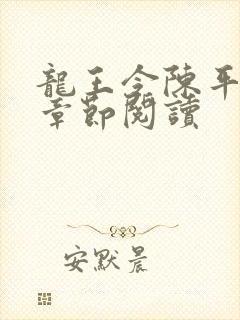 龍王令陳平
章節閱讀
安默晨